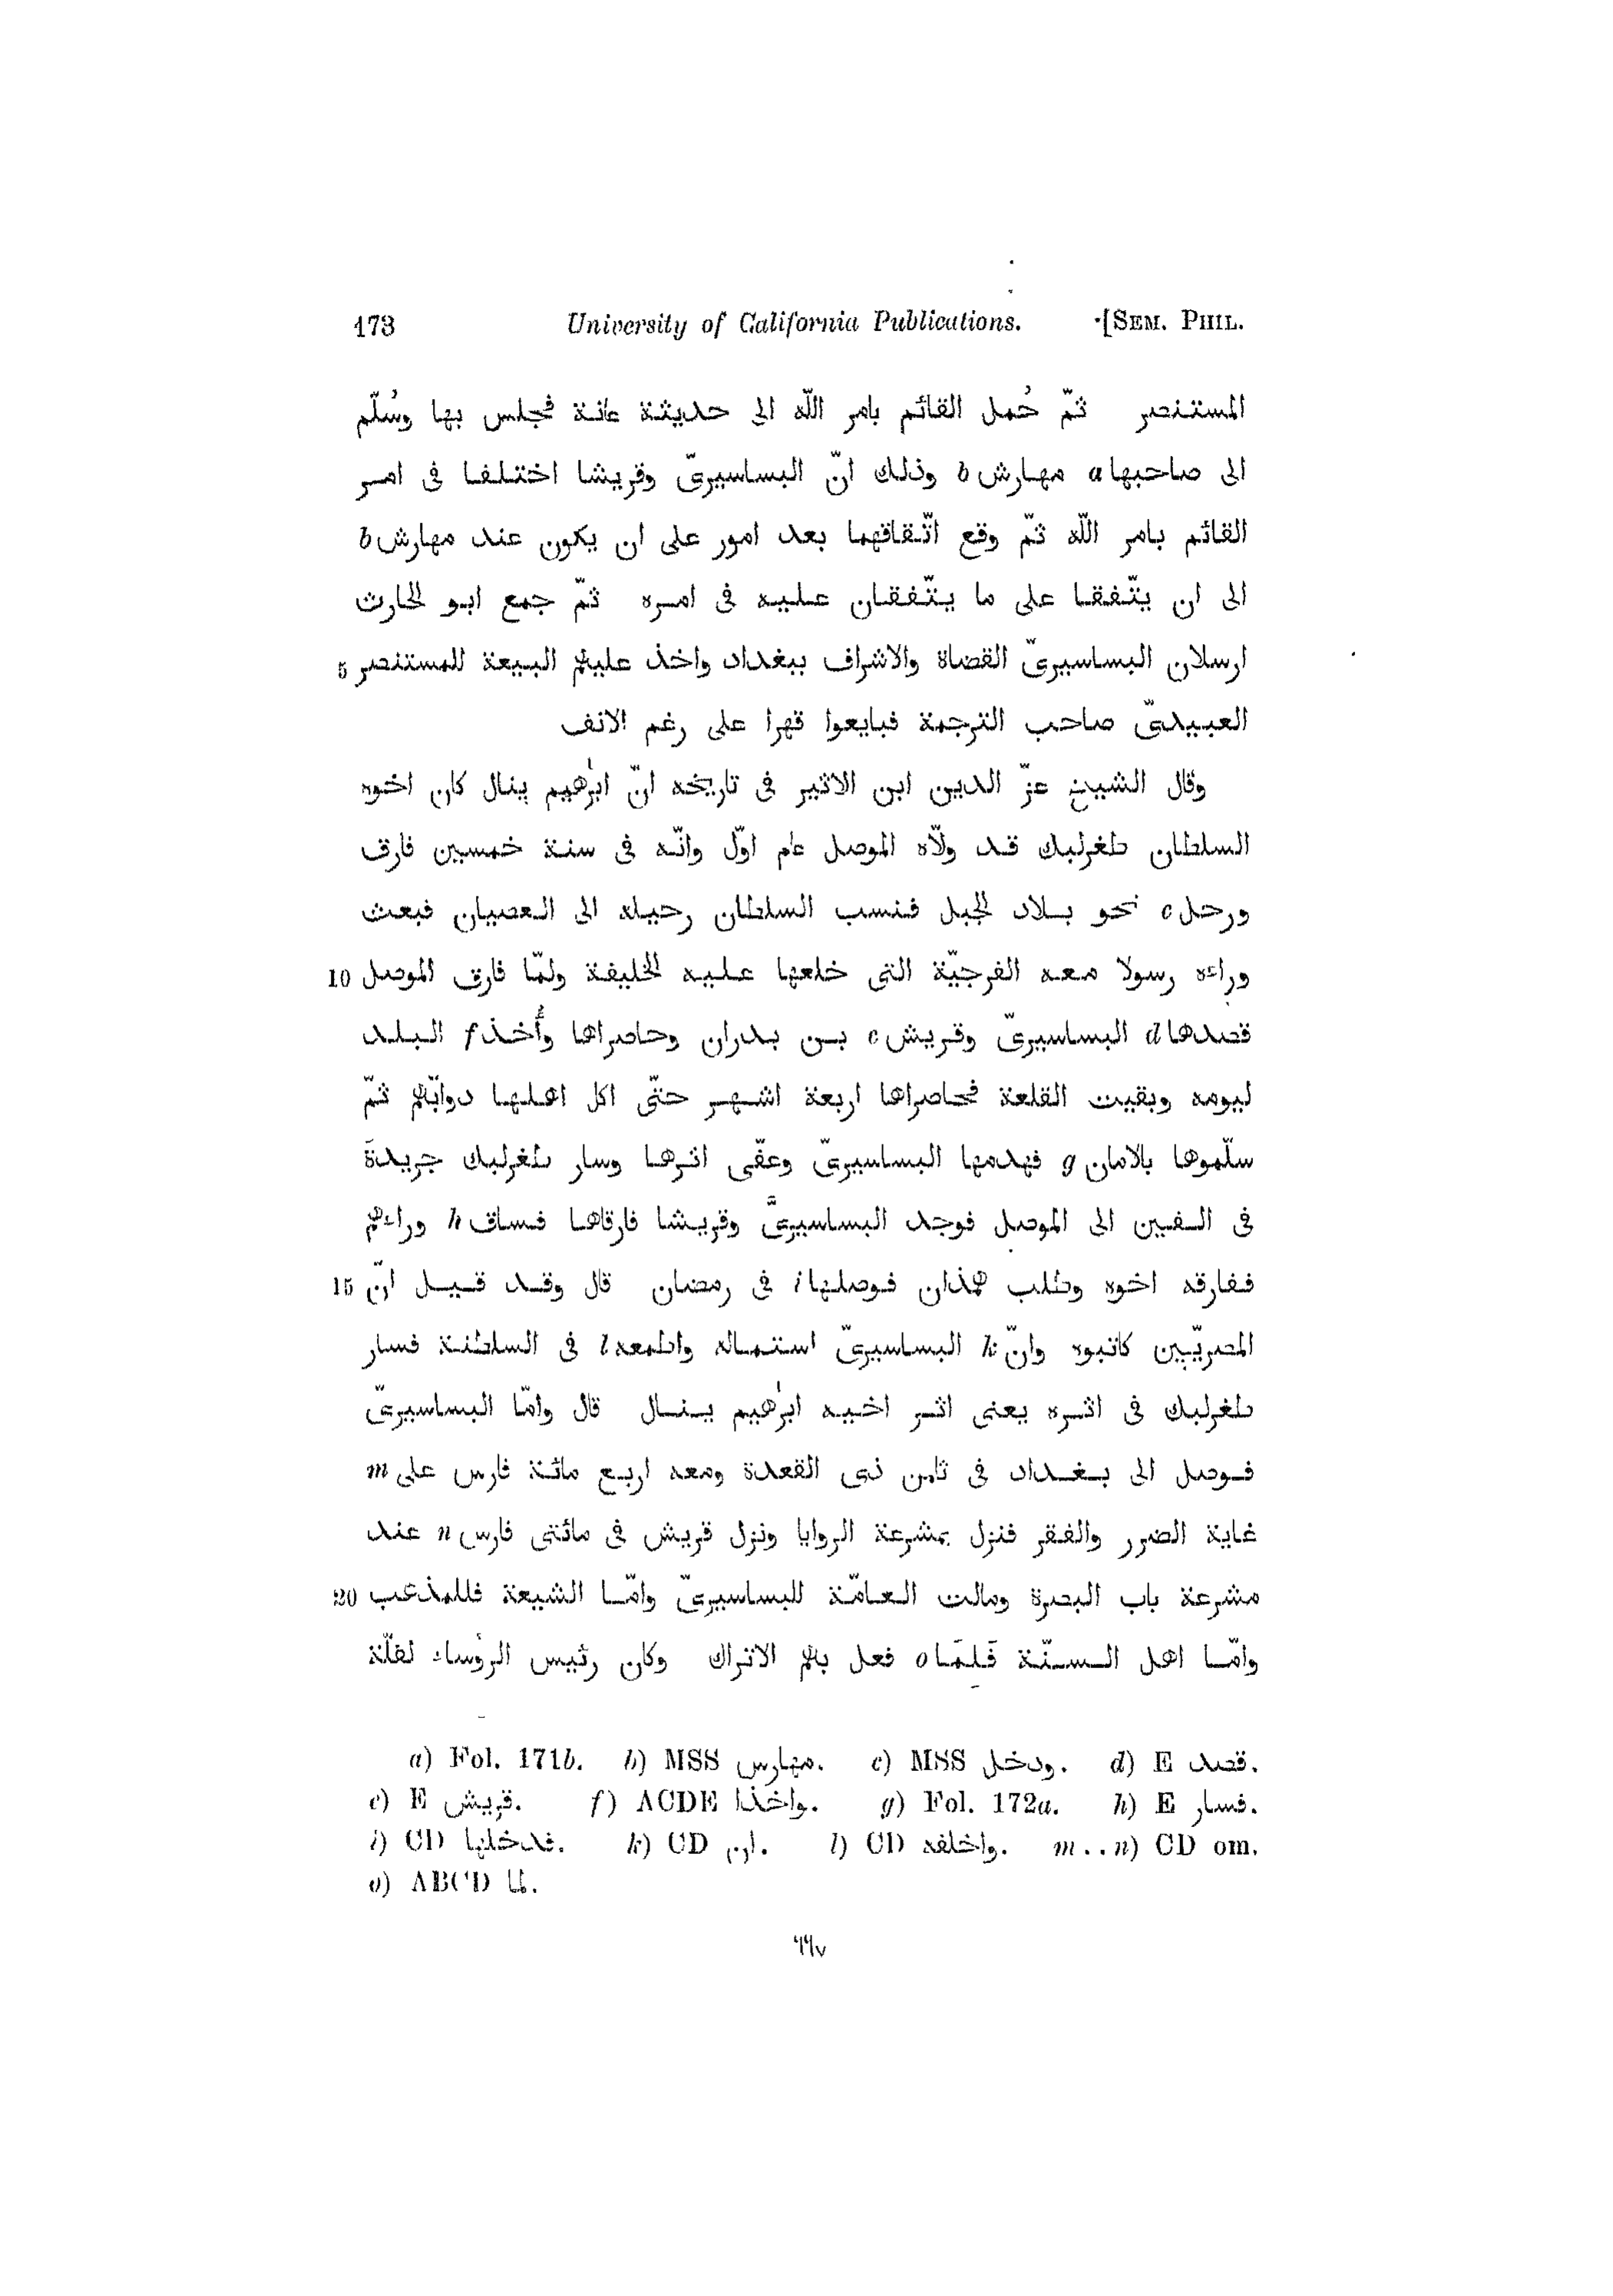 173 University of California Publications. [SEM. PHIL.
المستنصر ثمّ حُمل القائم بامر اللّه الى حديثة عانة فجلس بها وسُلّم
الى صاحبها a مهارش b وذلك انّ البساسيرىّ وقريشا اختلفا فى امر
القائم بامر اللّه ثمّ وقع اتّفاقهما بعد امور على ان يكون عند مهارش b
الى ان يتّفقا على ما يتّفقان عليه فى امره ثمّ جمع ابو الحارث
ارسلان البساسيرىّ القضاة والاشراف ببغداد واخذ عليهم البيعة للمستنصر 5
العبيدىّ صاحب الترجمة فبايعوا قهرا على رغم الانف
وقال الشيخ عزّ الدين ابن الاثير فى تاريخه انّ ابرٰهيم ينال كان اخوه
السلطان طغرلبك قد ولّاه الموصل عام اوّل وانّه فى سنة خمسين فارق
ورحل c نحو بلاد الجبل فنسب السلطان رحيله الى العصيان فبعث
وراءه رسولا معه الفرجيّة التى خلعها عليه الخليفة ولمّا فارق الموصل 10
قصدها d البساسيرىّ وقريش e بن بدران وحاصراها وأُخذ f البلد
ليومه وبقيت القلعة فحاصراها اربعة اشهر حتّى اكل اهلها دوابّهم ثمّ
سلّموها بالامان g فهدمها البساسيرىّ وعفّى اثرها وسار طغرلبك جريدةً
فى السفين الى الموصل فوجد البساسيرىَّ وقريشا فارقاها فساق h وراءهم
ففارقه اخوه وطلب همذان فوصلها i فى رمضان قال وقد قيل انّ 15
المصريّين كاتبوه وانّ k البساسيرىّ استماله واطمعه l فى السلطنة فسار
طغرلبك فى اثره يعنى اثر اخيه ابرٰهيم ينال قال وامّا البساسيرىّ
فوصل الى بغداد فى ثامن ذى القعدة ومعه اربع مائة فارس على m
غاية الضرر والفقر فنزل بمشرعة الروايا ونزل قريش فى مائتى فارس n عند
مشرعة باب البصرة ومالت العامّة للبساسيرىّ وامّا الشيعة فللمذهب 20
وامّا اهل السنّة فَلِمَا o فعل بهم الاتراك وكان رئيس الرؤساء لقلّة
a) Fol. 171b. b) MSS مهارس. c) MSS ودخل. d) E قصد.
e) E قريش. f) ACDE واخذا. g) Fol. 172a. h) E فسار.
i) CD فدخلها. k) CD ان. l) CD واخلفه. m..n) CD om.
o) ABCD لما.
٦٦٧